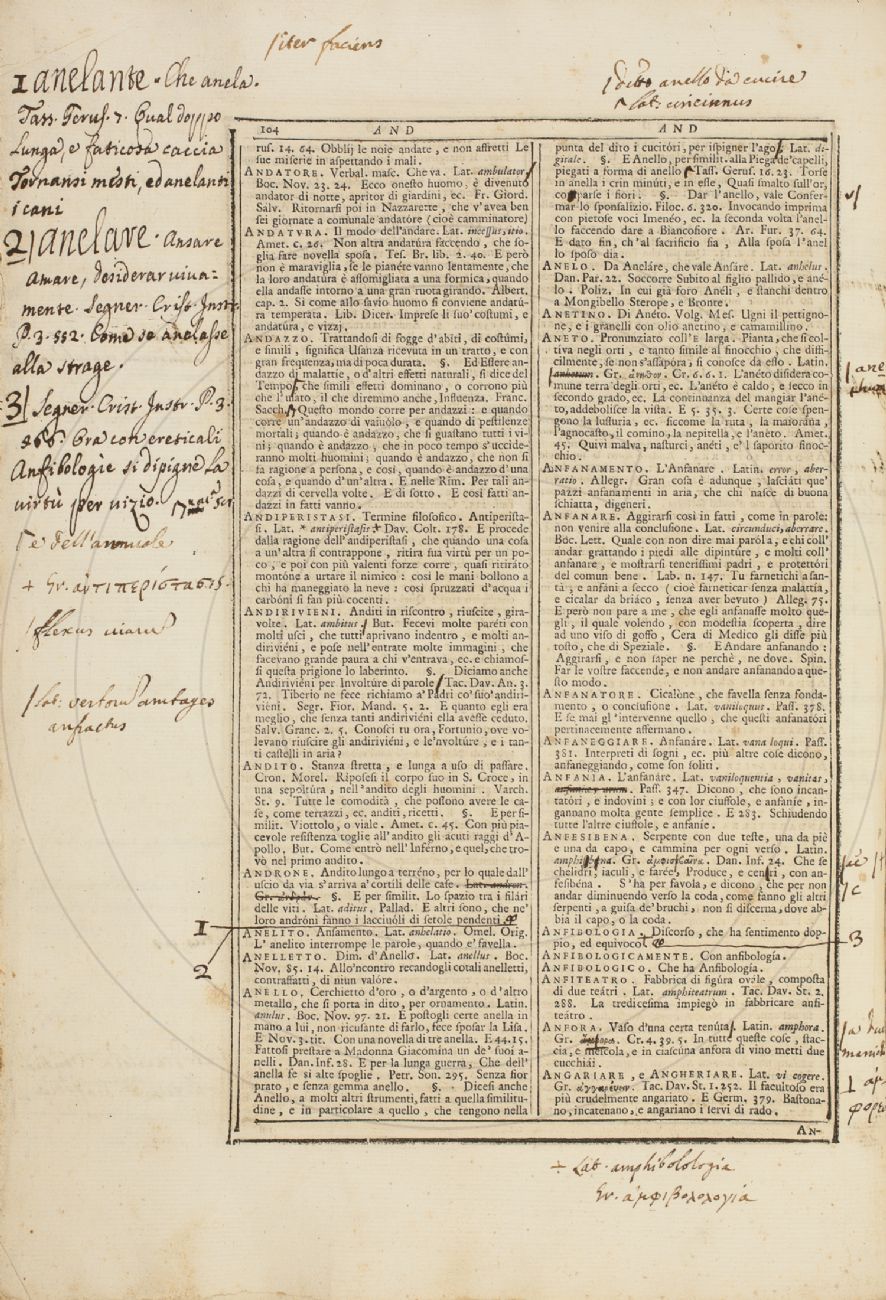 iter faciens
detto anello da cucire
Lat. circinnus
1 anelante. Che anela.
Tass. Gerus. 7. Qual doppo
lunga, e faticosa caccia
Tornansi mesti, ed anelanti
i cani
2) anelare. Ansare
Amare, desiderar viva-
mente. Segner. Crist. Instr.
P. 3. 552. Come se anelasse
alla strage.
3) Segner. Crist. Instr. P. 3.
266. Ora con ereticali
Anfibologìe si dipigne la
virtù per vizio.
e dell'annuale
+ Gr. ἀντιπερίστασις.
flexus viarum
Lat. ambages
anfractus
1
2
104 AND
ruf. 14. 64. Obblij le noie andate, e non affretti Le
sue miserie in aspettando i mali.
ANDATORE. Verbal. masc. Che va. Lat. ambulator
Boc. Nov. 23. 24. Ecco onesto huomo, è divenuto
andator di notte, apritor di giardini, ec. Fr. Giord.
Salv. Ritornarsi poi in Nazzarette, che v'avea ben
sei giornate a comunale andatóre (cioè camminatore)
ANDATVRA. Il modo dell'andare. Lat. incessus, itio.
Amet. c. 26. Non altra andatúra faccendo, che so-
glia fare novella sposa. Tes. Br. lib. 2. 40. E però
non è maraviglia, se le pianéte vanno lentamente, che
la loro andatúra è assomigliata a una formica, quando
ella andasse intorno a una gran ruota girando. Albert.
cap. 2. Si come allo savio huomo si conviene andatú-
ra temperata. Lib. Dicer. Imprese li suo' costumi, e
andatúra, e vizzj.
ANDAZZO. Trattandosi di fogge d'abiti, di costúmi,
e simili, significa Usanza ricevuta in un tratto, e con
gran frequenza, ma di poca durata. §. Ed Essere an-
dazzo di malattie, o d'altri effetti naturali, si dice del
Tempo, che simili effetti dominano, o corrono più
che l'usato, il che diremmo anche, Influenza. Franc.
Sacch. Questo mondo corre per andazzi: e quando
corre un'andazzo di vaiuólo, e quando di pestilenze
mortali; quando è andazzo, che si guastano tutti i vi-
ni; quando è andazzo, che in poco tempo s'uccide-
ranno molti huomini: quando è andazzo, che non si
fa ragione a persona, e così, quando è andazzo d'una
cosa, e quando d'un'altra. E nelle Rim. Per tali an-
dazzi di cervella volte. E di sotto. E così fatti an-
dazzi in fatti vanno.
ANDIPERISTASI. Termine filosofico. Antiperista-
si. Lat. antiperistasis Dav. Colt. 178. E procede
dalla ragione dell'andiperistasi, che quando una cosa
a un'altra si contrappone, ritira sua virtù per un po-
co, e poi con più valenti forze corre, quasi ritiráto
montóne a urtare il nimico: così le mani bollono a
chi ha maneggiato la neve: così spruzzati d'acqua i
carbóni si fan più cocenti.
ANDIRIVIENI. Anditi in riscontro, riuscite, gira-
volte. Lat. ambitus. But. Fecevi molte paréti con
molti usci, che tutti aprivano indentro, e molti an-
diriviéni, e pose nell'entrate molte immagini, che
facevano grande paura a chi v'entrava, ec. e chiamos-
si questa prigione lo laberinto. §. Diciamo anche
Andiriviéni per Involtúre di parole. Tac. Dav. An. 3.
72. Tiberio ne fece richiamo a' Padri co' suo' andiri-
viéni. Segr. Fior. Mand. 5. 2. E quanto egli era
meglio, che senza tanti andiriviéni ella avesse ceduto.
Salv. Granc. 2. 5. Conosci tu ora, Fortunio, ove vo-
levano riuscire gli andiriviéni, e le 'nvoltúre, e i tan-
ti castelli in aria?
ANDITO. Stanza stretta, e lunga a uso di passare.
Cron. Morel. Riposesi il corpo suo in S. Croce, in
una sepoltúra, nell'andito degli huomini. Varch.
St. 9. Tutte le comodità, che possono avere le ca-
se, come terrazzi, ec. anditi, ricetti. §. E per si-
milit. Viottolo, o viale. Amet. c. 45. Con più pia-
cevole resistenza toglie all'andito gli acuti raggi d'A-
pollo, But. Come entrò nell'Inferno, e quel, che tro-
vò nel primo andito.
ANDRONE. Andito lungo a terréno, per lo quale dall'
uscio da via s'arriva a' cortili delle case. Lat. andron.
§. E per similit. Lo spazio tra i filári
delle viti. Lat. aditus. Pallad. E altri sono, che ne'
loro andróni fanno i lacciuóli di setole pendenti.
ANELITO. Ansamento. Lat. anhelatio. Omel. Orig.
L'anelito interrompe le parole, quando e' favella.
ANELLETTO. Dim. d'Anello. Lat. anellus. Boc.
Nov. 85. 14. Allo'ncontro recandogli cotali anelletti,
contraffatti, di niun valóre.
ANELLO. Cerchietto d'oro, o d'argento, o d'altro
metallo, che si porta in dito, per ornamento. Latin.
anulus. Boc. Nov. 97. 21. E postogli certe anella in
mano a lui, non ricusante di farlo, fece sposar la Lisa.
E Nov. 3. tit. Con una novella di tre anella. E 44. 15.
Fattosi prestare a Madonna Giacomina un de' suoi a-
nelli. Dan. Inf. 28. E per la lunga guerra, Che dell'
anella fe si alte spoglie. Petr. Son. 295. Senza fior
prato, e senza gemma anello. §. Dicesi anche
Anello, a molti altri strumenti, fatti a quella similitu-
dine, e in particolare a quello, che tengono nella
AND
punta del dito i cucitóri, per ispigner l'ago. Lat. di-
gitale. §. E Anello, per similit. alla Piega de' capelli,
piegati a forma di anello. Tass. Gerus. 16. 23. Torse
in anella i crin minúti, e in esse, Quasi smalto sull'or,
cosparse i fiori. §. Dar l'anello, vale Confer-
mar lo sponsalizio. Filoc. 6. 320. Invocando imprima
con pietose voci Imenéo, ec. la seconda volta l'anel-
lo faccendo dare a Biancofiore. Ar. Fur. 37. 64.
E dato fin, ch'al sacrificio sia, Alla sposa l'anel
lo sposo dia.
ANELO. Da Aneláre, che vale Ansare. Lat. anhelus.
Dan. Par. 22. Soccorre Subito al figlio pallido, e ané-
lo. Poliz. In cui già foro Anéli, e stanchi dentro
a Mongibello Sterope, e Bronte.
ANETINO. Di Anéto. Volg. Mes. Ugni il pettigno-
ne, e i granelli con olio anetino, e camamillino.
ANETO. Pronunziato coll'E larga. Pianta, che si col-
tiva negli orti, e tanto simile al finocchio, che diffi-
cilmente, se non s'assapóra, si conosce da esso. Latin.
anethum. Gr. ἄνηθον. Cr. 6. 6. 1. L'anéto disidera co-
mune terra degli orti, ec. L'anéto è caldo, e secco in
secondo grado, ec. La continuanza del mangiar l'ané-
to, addebolisce la vista. E 5. 35. 3. Certe cose spen-
gono la lussuria, ec. siccome la ruta, la maiorána,
l'agnocasto, il comino, la nepitella, e l'anéto. Amet.
45. Quivi malva, nasturci, anéti, e'l saporito finoc-
chio.
ANFANAMENTO. L'Anfanare. Latin. error, aber-
ratio. Allegr. Gran cosa è adunque, lasciáti que'
pazzi anfanamenti in aria, che chi nasce di buona
schiatta, digeneri.
ANFANARE. Aggirarsi così in fatti, come in parole:
non venire alla conclusione. Lat. circunduci, aberrare.
Boc. Lett. Quale con non dire mai paróla, e chi coll'
andar grattando i piedi alle dipintúre, e molti coll'
anfanare, e mostrarsi tenerissimi padri, e protettóri
del comun bene. Lab. n. 147. Tu farnetichi a san-
tà, e anfáni a secco (cioè farneticar senza malattía,
e cicalar da briáco, senza aver bevuto) Alleg. 75.
E però non pare a me, che egli anfanasse molto que-
gli, il quale volendo, con modestia scoperta, dire
ad uno viso di goffo, Cera di Medico gli disse più
tosto, che di Speziale. §. E Andare anfanando:
Aggirarsi, e non saper ne perchè, ne dove. Spin.
Far le vostre faccende, e non andare anfanando a que-
sto modo.
ANFANATORE. Cicalóne, che favella senza fonda-
mento, o conclusione. Lat. vaniloquus. Pass. 378.
E se mai gl'intervenne quello, che questi anfanatóri
pertinacemente affermano.
ANFANEGGIARE. Anfanáre. Lat. vana loqui. Pass.
381. Interpreti di sogni, ec. più altre cose dicono,
anfaneggiando, come son soliti.
ANFANIA. L'anfanáre. Lat. vaniloquentia, vanitas,
Pass. 347. Dicono, che sono incan-
tatóri, e indovini; e con lor ciuffole, e anfanie, in-
gannano molta gente semplice. E 283. Schiudendo
tutte l'altre ciuffole, e anfanie.
ANFESIBENA. Serpente con due teste, una da piè
e una da capo, e cammina per ogni verso. Latin.
amphisbæna. Gr. ἀμφίσβαινα. Dan. Inf. 24. Che se
chelidri, iaculi, e farée, Produce, e cencri, con an-
fesibéna. S'ha per favola, e dicono, che per non
andar diminuendo verso la coda, come fanno gli altri
serpenti, a guisa de' bruchi, non si discerna, dove ab-
bia il capo, o la coda.
ANFIBOLOGIA. Discorso, che ha sentimento dop-
pio, ed equivoco.
ANFIBOLOGICAMENTE. Con anfibología.
ANFIBOLOGICO. Che ha Anfibología.
ANFITEATRO. Fabbrica di figúra ovále, composta
di due teátri. Lat. amphiteatrum. Tac. Dav. St. 2.
288. La tredicesima impiegò in fabbricare anfi-
teátro.
ANFORA. Vaso d'una certa tenúta. Latin. amphora.
Gr. Cr. 4. 39. 5. In tutte queste cose, stac-
cia, e mescola, e in ciascúna anfora di vino metti due
cucchiái.
ANGARIARE, e ANGHERIARE. Lat. vi cogere.
Gr. ἀγγαρεύειν. Tac. Dav. St. 1. 252. Il facultoso era
più crudelmente angariato. E Germ. 379. Bastona-
no, incatenano, e angariano i servi di rado.
AN-
3
+ Lat. amphibolologia
Gr. ἀμφιβολολογία